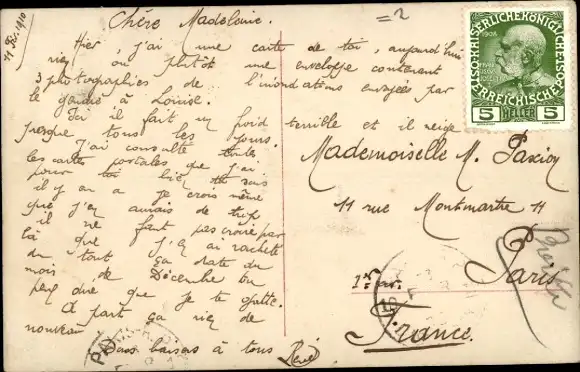 11 Fév. 1910
Chère Madeleine.
= 2
Hier, j'ai une carte de toi, aujourd'hui
rien ou plutôt une enveloppe contenant
3 photographies de l'inondations envoyées par
le à Louise.
Ici il fait un froid terrible et il neige
presque tous les jours.
J'ai consulté toutes
les cartes postales que j'ai
pour toi
il y en a je crois même
que j'en aurais de trop
il ne faut pas croire par
là que j'en ai racheté
du tout ça date du
mois de Décembre tu
peux dire que je te gâte.
A part ça rien de
nouveau
Bons baisers à tous René
KAISERLICHE KÖNIGLICHE
ÖSTERREICHISCHE POST
1908
5 HELLER 5
Mademoiselle M.
11 rue Montmartre 11
Paris
1er ar.
France.